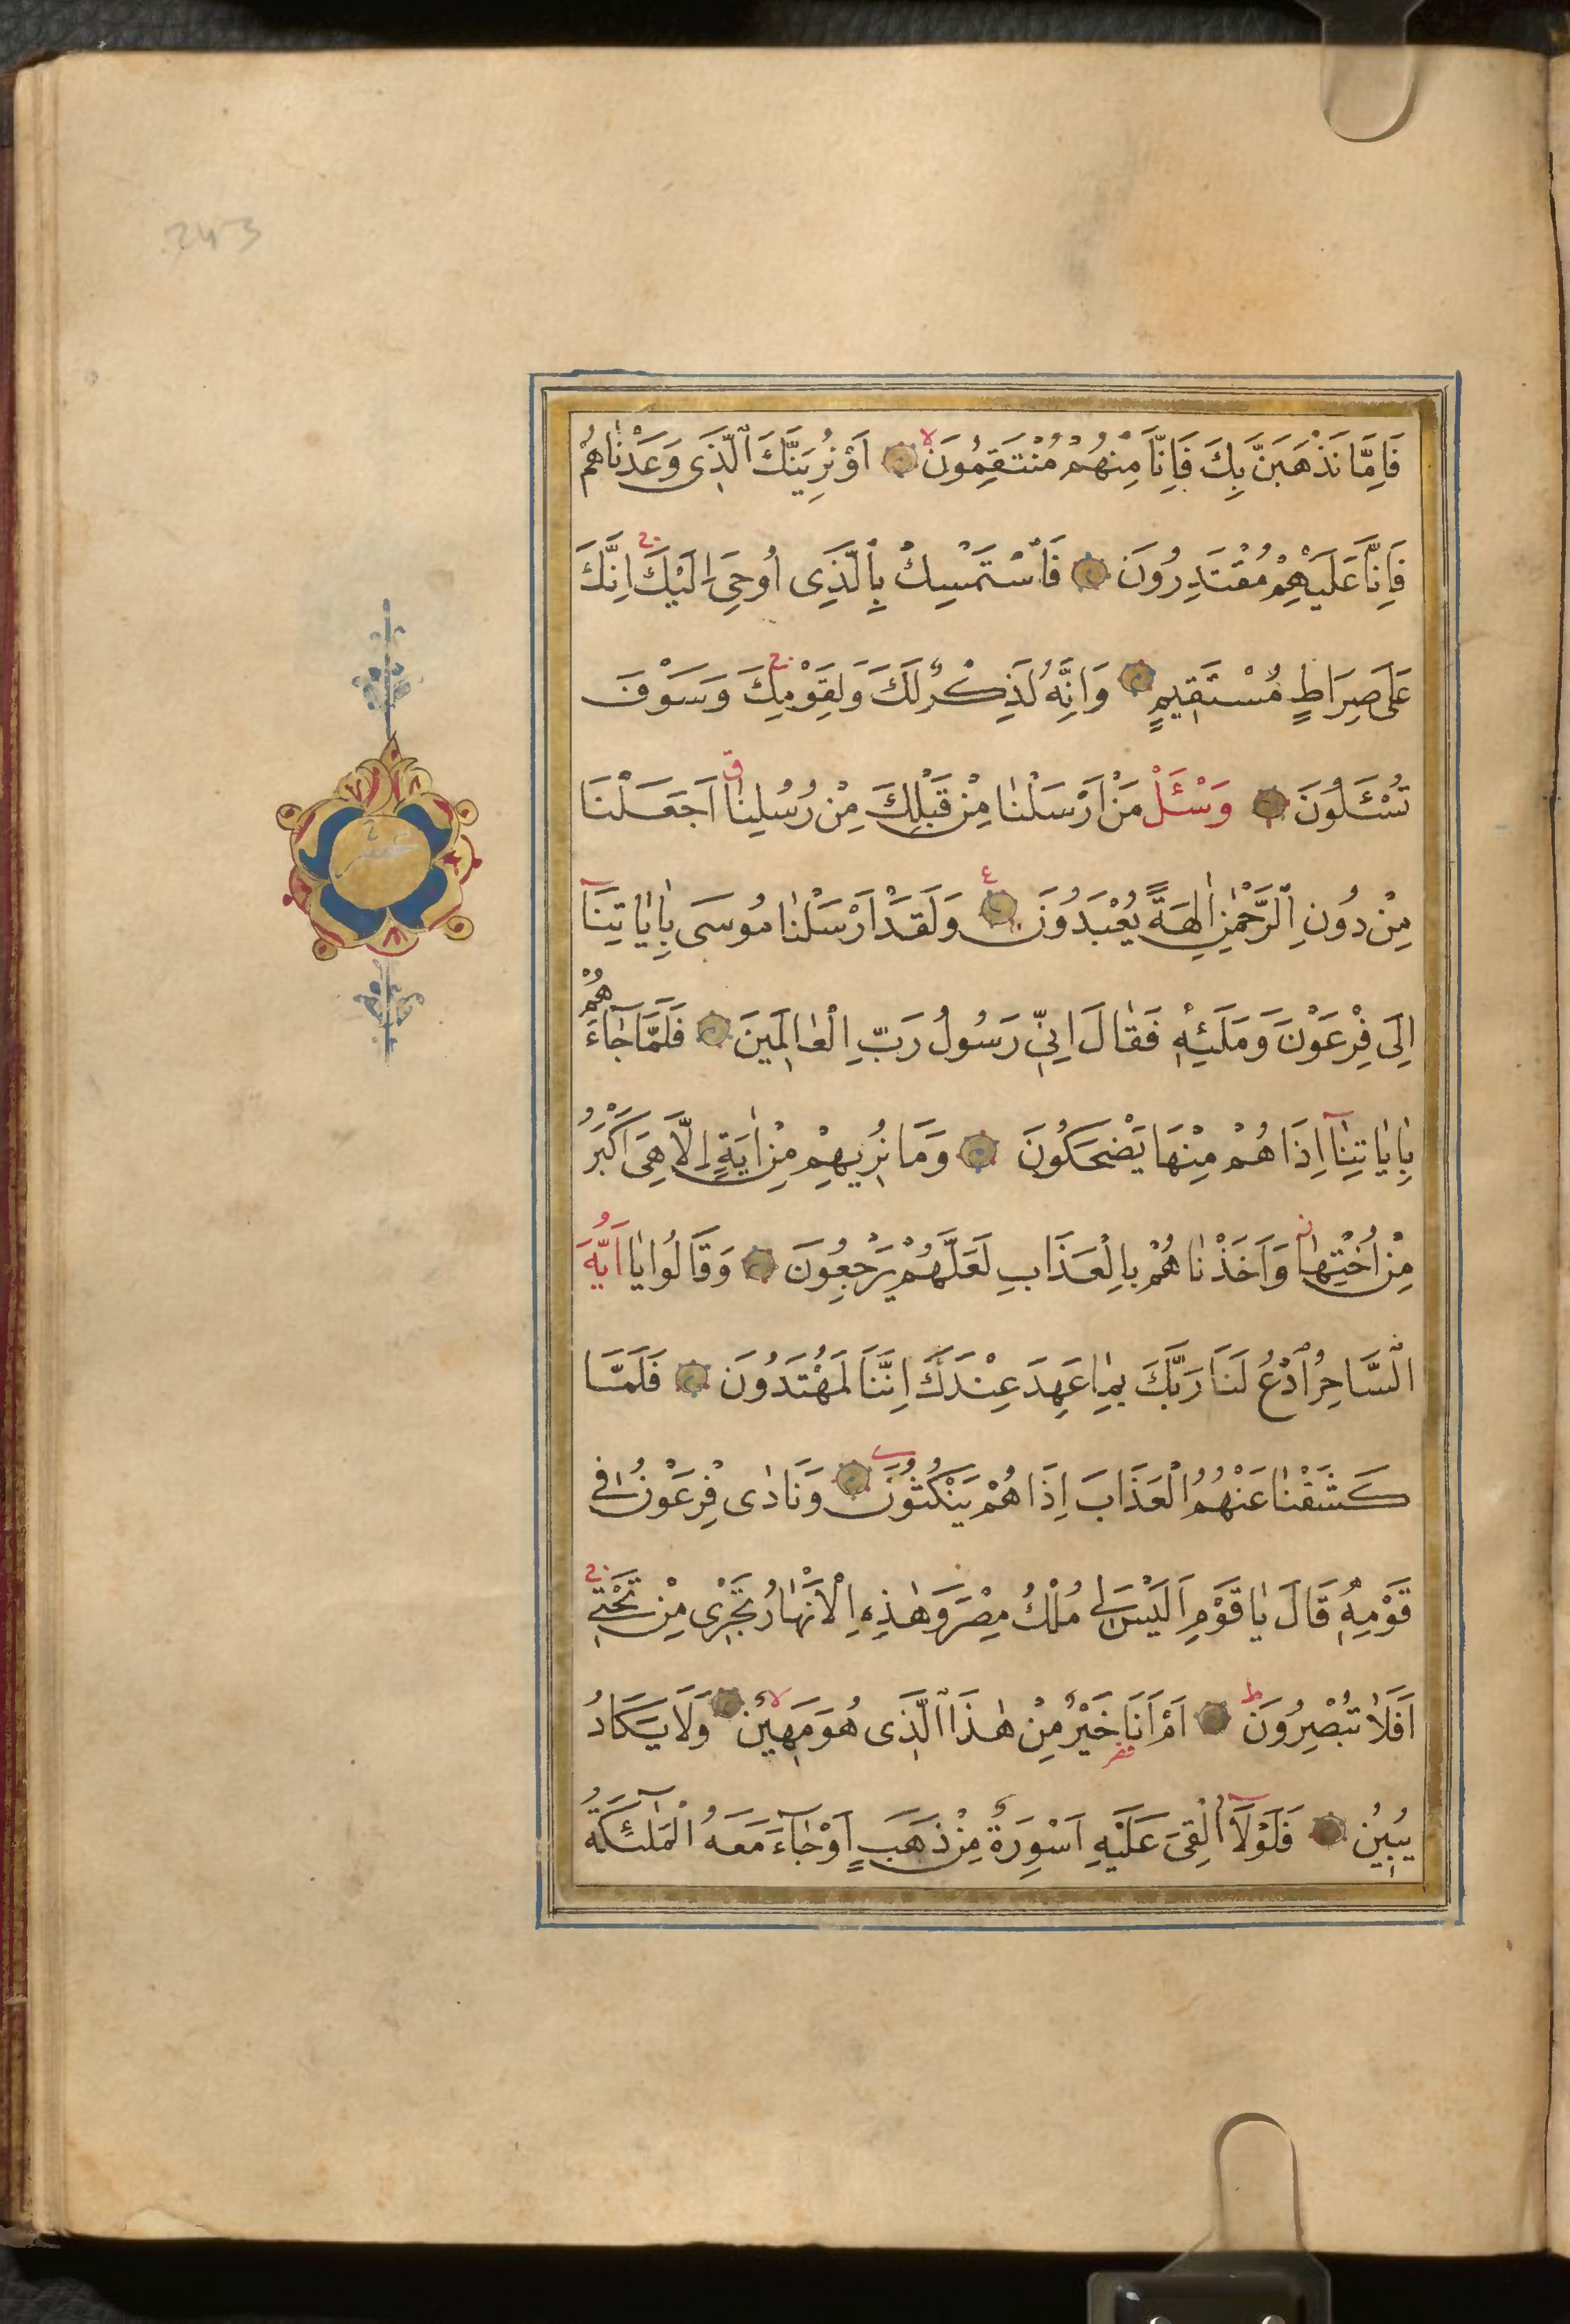 243
فَاِمَّا نَذْهَبَنَّ بِكَ فَاِنَّا مِنْهُمْ مُنْتَقِمُونَ اَوْ نُرِيَنَّكَ الَّذِى وَعَدْنَاهُمْ
فَاِنَّا عَلَيْهِمْ مُقْتَدِرُونَ فَاسْتَمْسِكْ بِالَّذِى اُوحِىَ اِلَيْكَ اِنَّكَ
عَلَى صِرَاطٍ مُسْتَقِيمٍ وَاِنَّهُ لَذِكْرٌ لَكَ وَلِقَوْمِكَ وَسَوْفَ
تُسْـَٔلُونَ وَسْـَٔلْ مَنْ اَرْسَلْنَا مِنْ قَبْلِكَ مِنْ رُسُلِنَا اَجَعَلْنَا
مِنْ دُونِ الرَّحْمٰنِ اٰلِهَةً يُعْبَدُونَ وَلَقَدْ اَرْسَلْنَا مُوسَى بِاٰيَاتِنَا
اِلَى فِرْعَوْنَ وَمَلَئِهٖ فَقَالَ اِنِّى رَسُولُ رَبِّ الْعَالَمِينَ فَلَمَّا جَاءَهُمْ
بِاٰيَاتِنَا اِذَا هُمْ مِنْهَا يَضْحَكُونَ وَمَا نُرِيهِمْ مِنْ اٰيَةٍ اِلَّا هِىَ اَكْبَرُ
مِنْ اُخْتِهَا وَاَخَذْنَاهُمْ بِالْعَذَابِ لَعَلَّهُمْ يَرْجِعُونَ وَقَالُوا يَا اَيُّهَ
السَّاحِرُ ادْعُ لَنَا رَبَّكَ بِمَا عَهِدَ عِنْدَكَ اِنَّنَا لَمُهْتَدُونَ فَلَمَّا
كَشَفْنَا عَنْهُمُ الْعَذَابَ اِذَا هُمْ يَنْكُثُونَ وَنَادٰى فِرْعَوْنُ فِى
قَوْمِهٖ قَالَ يَا قَوْمِ اَلَيْسَ لِى مُلْكُ مِصْرَ وَهٰذِهِ الْاَنْهَارُ تَجْرِى مِنْ تَحْتِى
اَفَلَا تُبْصِرُونَ اَمْ اَنَا خَيْرٌ مِنْ هٰذَا الَّذِى هُوَ مَهِينٌ وَلَا يَكَادُ
يُبِينُ فَلَوْلَا اُلْقِىَ عَلَيْهِ اَسْوِرَةٌ مِنْ ذَهَبٍ اَوْ جَاءَ مَعَهُ الْمَلٰئِكَةُ